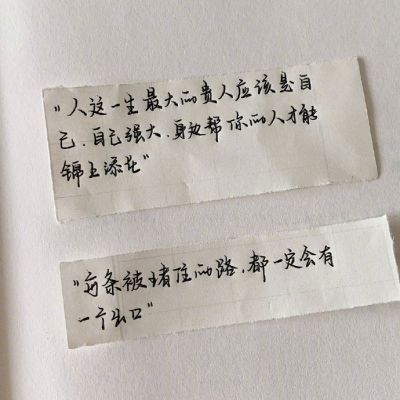 "人这一生最大的贵人应该是自
己.自己强大.身边帮你的人才能
锦上添花"
"每条被堵住的路.都一定会有
一个出口"